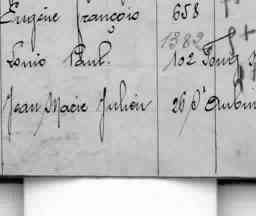 Eugène François 658
1382
Louis Paul. 102
Jean Marie Julien 26 St Aubin